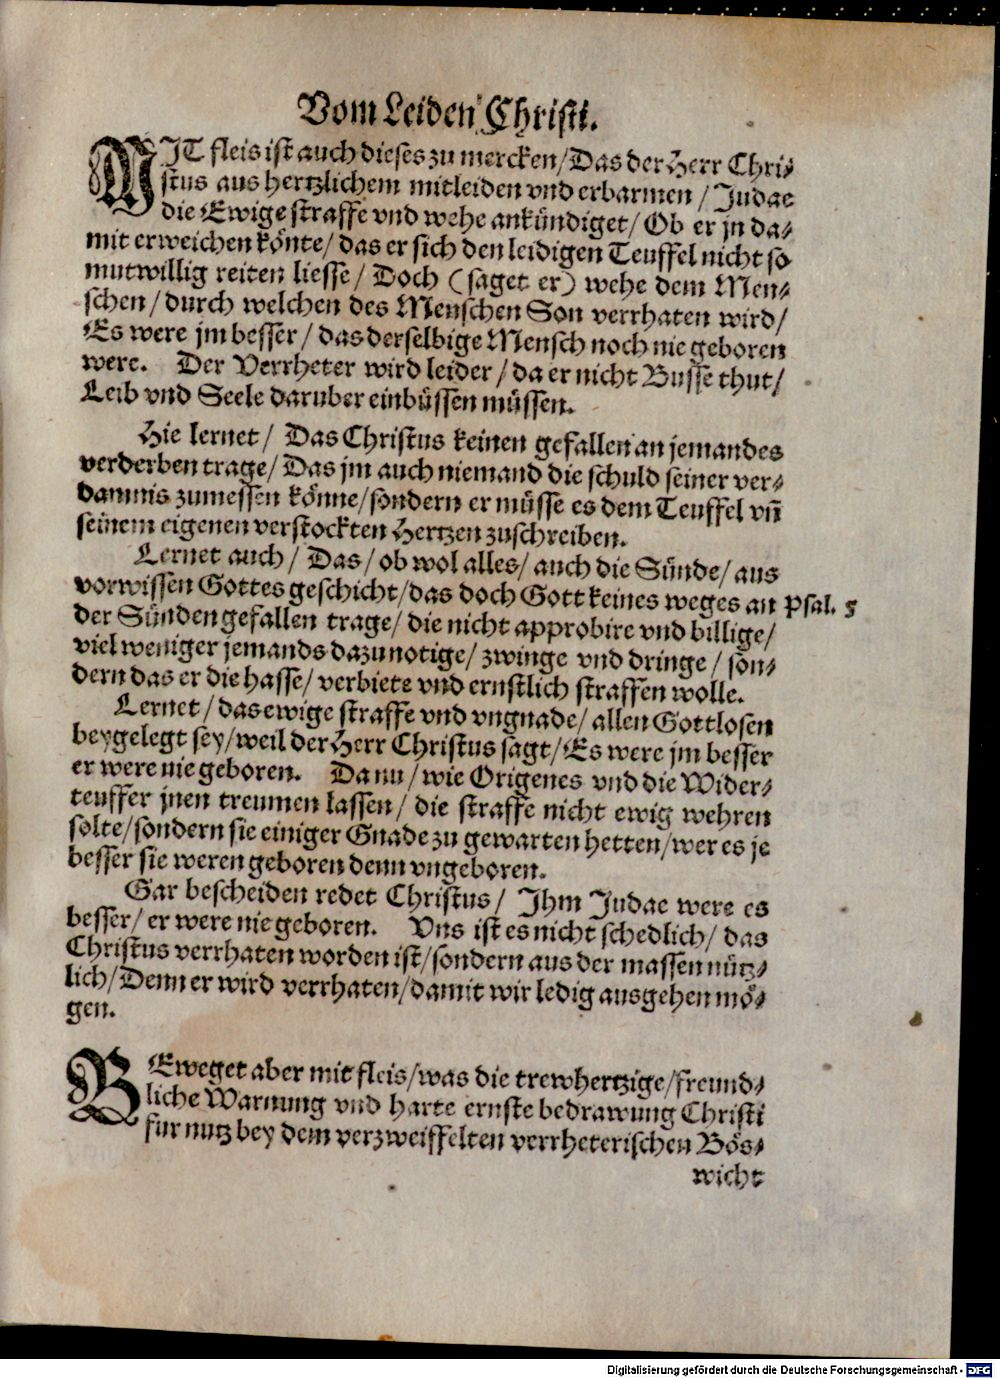 Vom Leiden Christi.
MIT fleis ist auch dieses zu mercken/Das der Herr Chri-
stus aus hertzlichem mitleiden vnd erbarmen / Judae
die Ewige straffe vnd wehe ankündiget/ Ob er jn da-
mit erweichen könte/ das er sich den leidigen Teuffel nicht so
mutwillig reiten liesse/ Doch (saget er) wehe dem Men-
schen/durch welchen des Menschen Son verrhaten wird/
Es were jm besser/ das derselbige Mensch noch nie geboren
were. Der Verrheter wird leider/da er nicht Busse thut/
Leib vnd Seele daruber einbüssen müssen.
Hie lernet/ Das Christus keinen gefallen an jemandes
verderben trage/Das jm auch niemand die schuld seiner ver-
damnis zumessen könne/sondern er müsse es dem Teuffel vñ
seinem eigenen verstockten Hertzen zuschreiben.
Lernet auch/ Das/ob wol alles/ auch die Sünde/aus
vorwissen Gottes geschicht/das doch Gott keines weges an Psal. 5
der Sünden gefallen trage/ die nicht approbire vnd billige/
viel weniger jemands dazu notige/ zwinge vnd dringe / son-
dern das er die hasse/verbiete vnd ernstlich straffen wolle.
Lernet/das ewige straffe vnd vngnade/allen Gottlosen
beygelegt sey/weil der Herr Christus sagt/Es were jm besser
er were nie geboren. Da nu/wie Origenes vnd die Wider-
teuffer jnen treumen lassen/ die straffe nicht ewig wehren
solte/sondern sie einiger Gnade zu gewarten hetten/wer es je
besser sie weren geboren denn vngeboren.
Gar bescheiden redet Christus/ Ihm Judae were es
besser/ er were nie geboren. Vns ist es nicht schedlich/ das
Christus verrhaten worden ist/sondern aus der massen nütz-
lich/Denn er wird verrhaten/damit wir ledig ausgehen mö-
gen.
BEweget aber mit fleis/was die trewhertzige/freund-
liche Warnung vnd harte ernste bedrawung Christi
fur nutz bey dem verzweiffelten verrheterischen Bös-
wicht
Digitalisierung gefördert durch die Deutsche Forschungsgemeinschaft - DFG